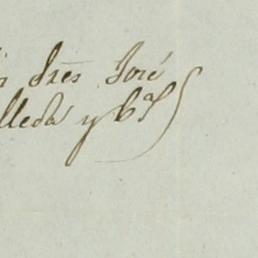 Sres José
lleda y Cª